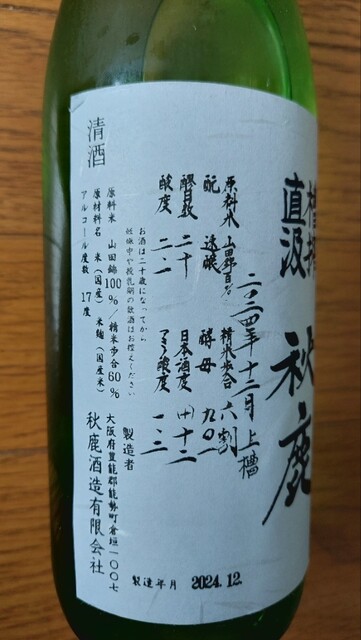 槽搾
直汲
秋鹿
二〇二四年十二月上槽
原料米 山田錦百% 精米歩合 六割
酛 速醸 酵母 九〇一
醪日数 二十 日本酒度 (+)十二
酸度 二.一 アミノ酸度 一.三
お酒は二十歳になってから
妊娠中や授乳期の飲酒はお控えください
清酒
原料米 山田錦100%/精米歩合60%
原材料名 米(国産) 米麹(国産米)
アルコール度数 17度
製造者
大阪府豊能郡能勢町倉垣一〇〇七
秋鹿酒造有限会社
製造年月 2024.12.